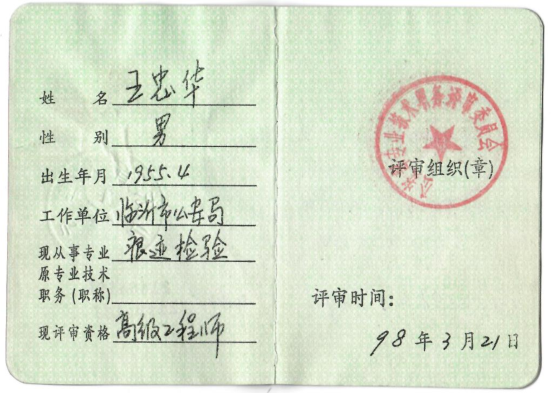 姓 名 王忠华
性 别 男
出生年月 1955.4
工作单位 临沂市公安局
现从事专业 痕迹检验
原专业技术
职务(职称)
现评审资格 高级工程师
专业技术职务评审委员会
评审组织(章)
评审时间：
98年3月21日